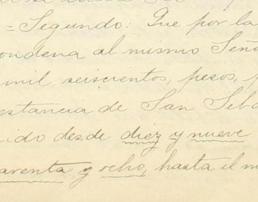 = Segundo: Que por la
condena al mismo Seño
mil seiscientos, pesos, p
estancia de San Seba
ido desde diez y nueve
arenta y ocho, hasta el m